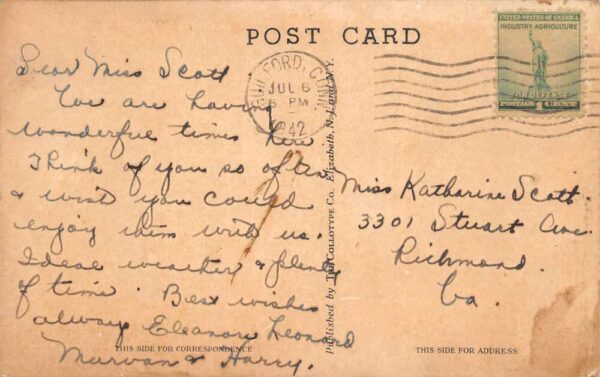 POST CARD
UNITED STATES OF AMERICA
INDUSTRY AGRICULTURE
FOR DEFENSE
POSTAGE 1 CENT
GUILFORD, CONN.
JUL 6
6 PM
1942
Dear Miss Scott.
We are having
wonderful times here
Think of you so often
& wish you could
enjoy them with us.
Ideal weather & plenty
of time. Best wishes
always Eleanore Leonard
& Harry.
Miss Katharine Scott.
3301 Stuart Ave.
Richmond.
Va.
Published by The Collotype Co., Elizabeth, N. J. and N. Y.
THIS SIDE FOR CORRESPONDENCE
THIS SIDE FOR ADDRESS